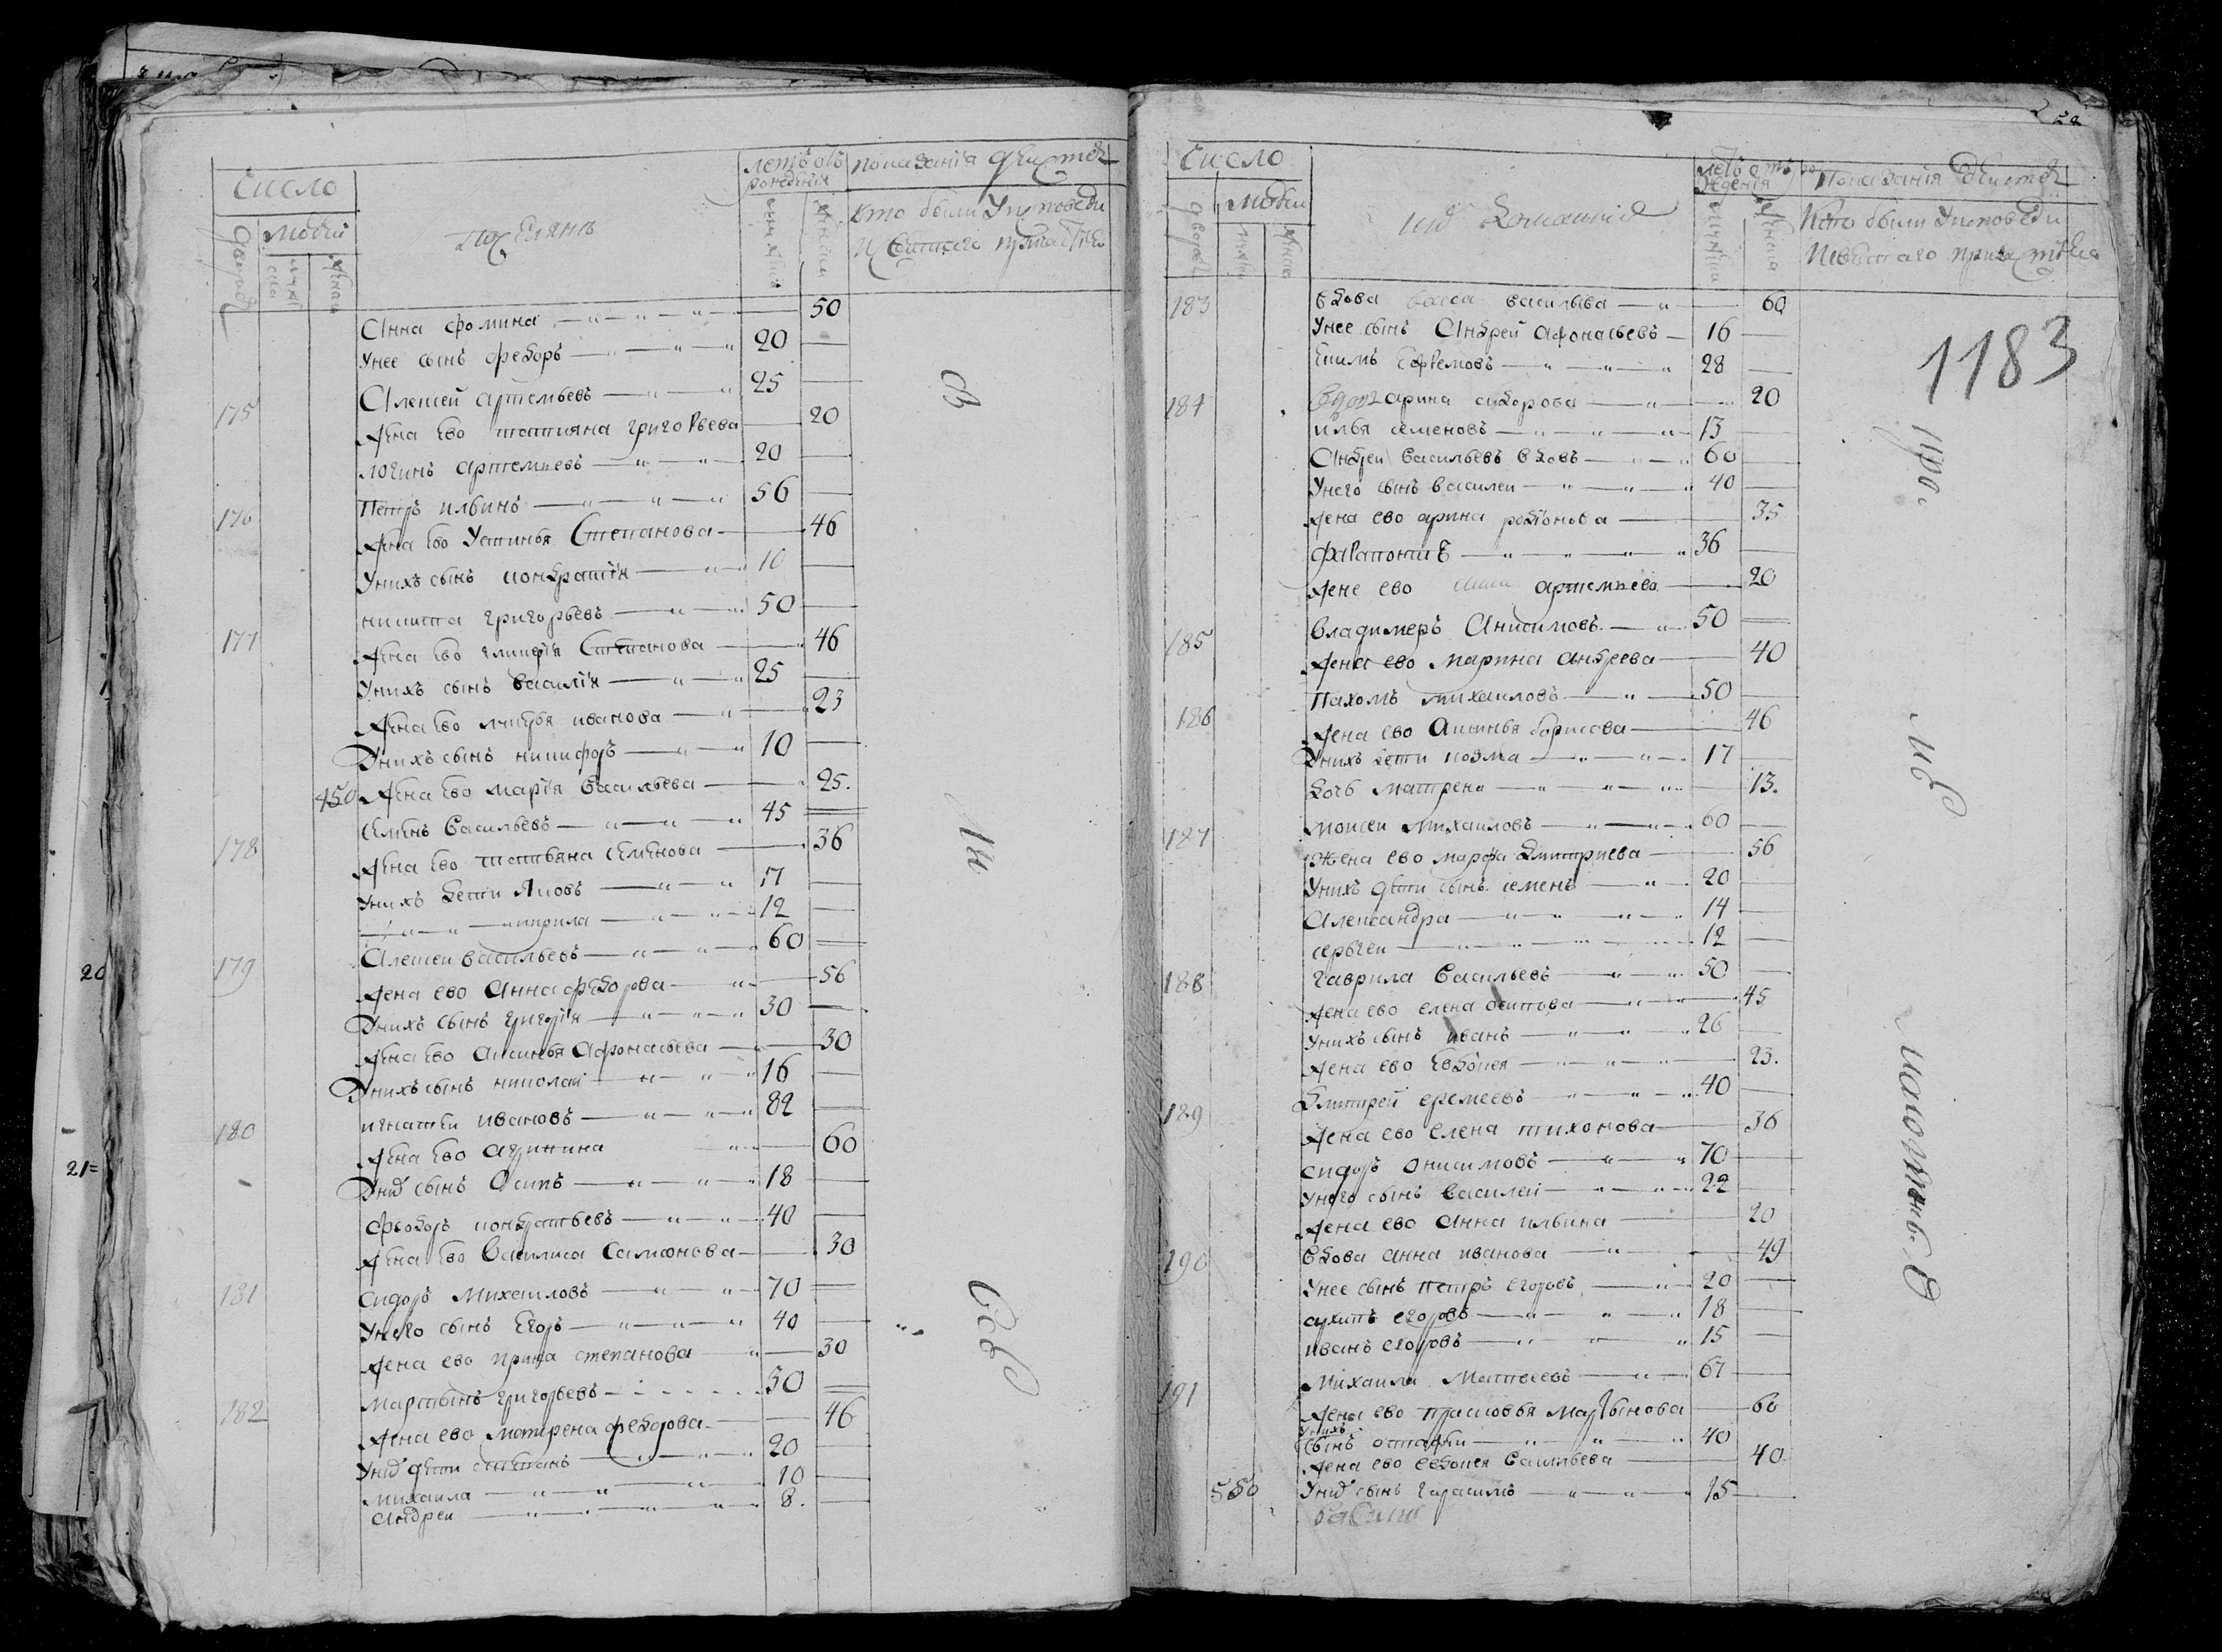 Число
людей
дворов
мужска
женска
поселянъ
летъ отъ рождения
мужска
женска
показания действ
кто были у исповеди
и святаго причастия
Анна фомина 50
У нее сынъ федоръ 20
175 Алексей артемьевъ 25
жена ево татияна григорьева 20
логинъ артемиевъ 20
176 Петръ ильинъ 56
жена ево Устинья Степанова 46
У нихъ сынъ кондратiй 10
177 никита григорьевъ 50
жена ево гликерiя Степанова 46
У нихъ сынъ василiй 25
жена ево лукерья иванова 23
У нихъ сынъ никифоръ 10
450 жена ево марiя васильева 25.
178 Семенъ васильевъ 45
жена ево татьяна семенова 36
У нихъ дети Яковъ 17
кирила 12
179 Алексей васильевъ 60
жена ево Анна федорова 56
У нихъ сынъ григорiй 30
жена ево Аксинья Афонасьева 30
У нихъ сынъ николай 16
180 игнатей ивановъ 82
жена ево агрипина 60
У них сынъ Осипъ 18
феодоръ кондратьевъ 40
жена ево василиса самсонова 30
181 сидоръ михаиловъ 70
У него сынъ Егоръ 40
жена ево ирина степанова 30
182 мартынъ григорьевъ 50
жена ево матрена федорова 46
У них дети степанъ 20
михаила 10
андреи 8.
Число
людей
дворовъ
мужска
женска
их домашние
летъ отъ рождения
мужска
женска
Показания действ
Кто были у исповеди
и святаго причастия
1183
183 вдова васса васильева 60
У нее сынъ Андрей афонасьевъ 16
Екимъ Ефремовъ 28
184 вдова арина сидорова 20
илья семеновъ 13
Андреи васильевъ вдовъ 60
У него сынъ василеи 40
жена ево арина родионова 35
фарапонти 36
жене ево артемьева 20
185 владимеръ Анисимовъ 50
жена ево марина андреева 40
186 Пахомъ михаиловъ 50
жена ево Аксинья борисова 46
У нихъ дети козма 17
дочь матрена 13.
187 моисеи михаиловъ 60
жена ево марфа дмитриева 56
У нихъ дети сынъ семенъ 20
Александра 14
сергеи 12
188 гаврила васильевъ 50
жена ево елена осипова 45
У нихъ сынъ иванъ 26
жена ево евдокея 23.
189 дмитрей еремеевъ 40
жена ево елена тихонова 36
сидоръ онисимовъ 70
У него сынъ василей 22
жена ево анна ильина 20
190 вдова анна иванова 49
У нее сынъ петръ егоровъ 20
архипъ егоровъ 18
иванъ егоровъ 15
191 михаила Матвеевъ 67
жена ево прасковья мартынова 60
У нихъ
сынъ остафеи 40
жена ево евдокея васильева 40.
550 У них сынъ герасимъ 15